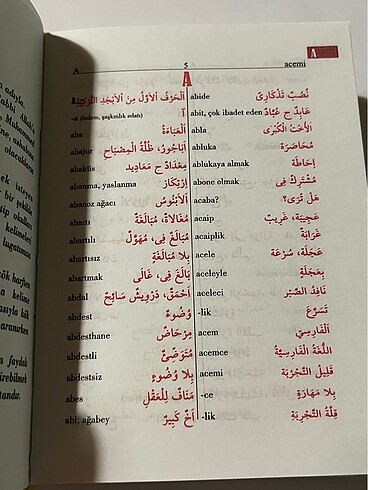 A 5 acemi
A
اَلْحَرْفُ اْلاَوَّلُ مِنَ اْلاَبْجَدِ التُّرْكِيَّةِ
-a (ünlem, şaşkınlık edatı) آ
aba اَلْعَبَاءَةُ
abajür اَبَاجُورُ، ظُلَّةُ الْمِصْبَاحِ
abaküs مِعْدَادٌ ج مَعَادِيد
abanma, yaslanma اِرْتِكَازٌ
abanoz ağacı اَلْآبَنُوسُ
abartı مُغَالَاةٌ، مُبَالَغَةٌ
abartılı مُبَالَغٌ فِى، مُهَوَّلٌ
abartısız بِلَا مُبَالَغَةٍ
abartmak بَالَغَ فِى، غَالَى
abdal اَحْمَقُ، دَرْوِيشٌ سَائِحٌ
abdest وُضُوءٌ
abdesthane مِرْحَاضٌ
abdestli مُتَوَضِّئٌ
abdestsiz بِلَا وُضُوءٍ
abes مُنَافٍ لِلْعَقْلِ
abi, ağabey اَخٌ كَبِيرٌ
abide نُصُبٌ تَذْكَارِىٌّ
abit, çok ibadet eden عَابِدٌ ج عُبَّادٌ
abla اَلْاُخْتُ الْكُبْرَى
abluka مُحَاصَرَةٌ
ablukaya almak اِحَاطَةٌ
abone olmak مُشْتَرِكٌ فِى
acaba? هَلْ تُرَى؟
acaip عَجِيبَةٌ، غَرِيبٌ
acaiplik غَرَابَةٌ
acele عَجَلَةٌ، سُرْعَةٌ
aceleyle بِعَجَلَةٍ
aceleci نَافِدُ الصَّبْرِ
-lik تَسَرُّعٌ
acem اَلْفَارِسِىُّ
acemce اللُّغَةُ الْفَارِسِيَّةُ
acemi قَلِيلُ التَّجْرُبَةِ
-ce بِلَا مَهَارَةٍ
-lik قِلَّةُ التَّجْرِبَةِ